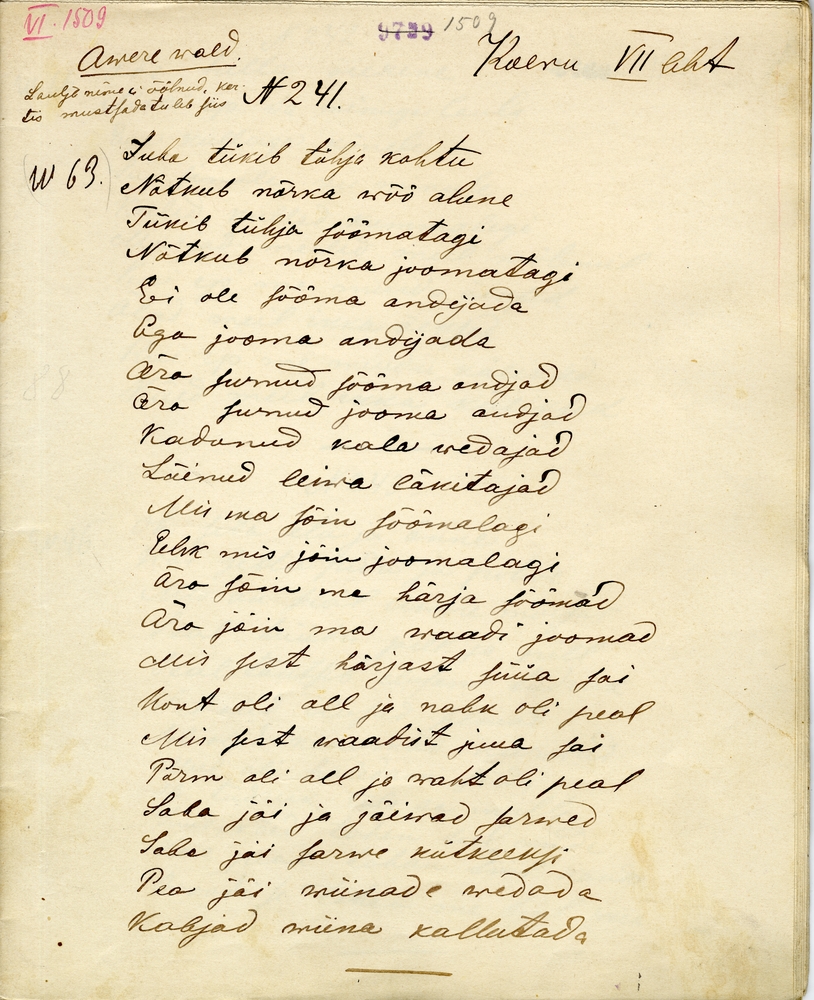 VI. 1509
9739 1509
Awere wald.
Koeru VII leht
Laulja nime ei öölnud, ker-
tis mustsada tuleb siis
N 241.
W 63.
Juba tükib tühja kohtu
Nõtkub nõrka wöö alune
Tükib tühja söömatagi
Nõtkub nõrka joomatagi
Ei ole sööma andijada
Ega jooma andijada
Ära surnud sööma andjad
Ära surnud jooma andjad
Kadunud kala wedajad
Läinud leiwa läkitajad
Mis ma söin söömalagi
Ehk mis jöin joomalagi
Ära söin me härja söömad
Ära jöin ma waadi joomad
Mis sest härjast süüa sai
Kont oli all ja nahk oli peal
Mis sest waadist juua sai
Pärm oli all ja waht oli peal
Saba jäi ja jäiwad sarwed
Saba jäi sarwe kütkeeksi
Pea jäi wiinade wedada
Kabjad wiina kallutada